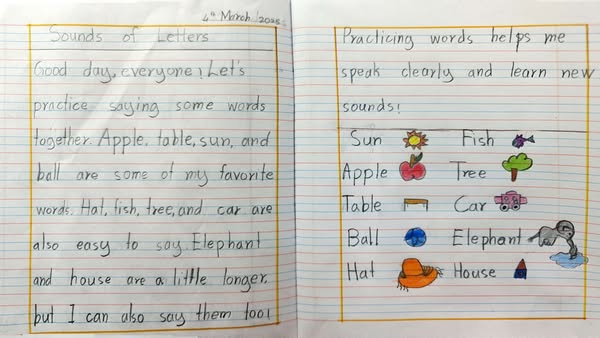 4th March 2025
Sounds of Letters
Good day, everyone! Let's
practice saying some words
together. Apple, table, sun, and
ball are some of my favorite
words. Hat, fish, tree, and car are
also easy to say. Elephant
and house are a little longer,
but I can also say them too!
Practicing words helps me
speak clearly and learn new
sounds!
Sun Fish
Apple Tree
Table Car
Ball Elephant
Hat House